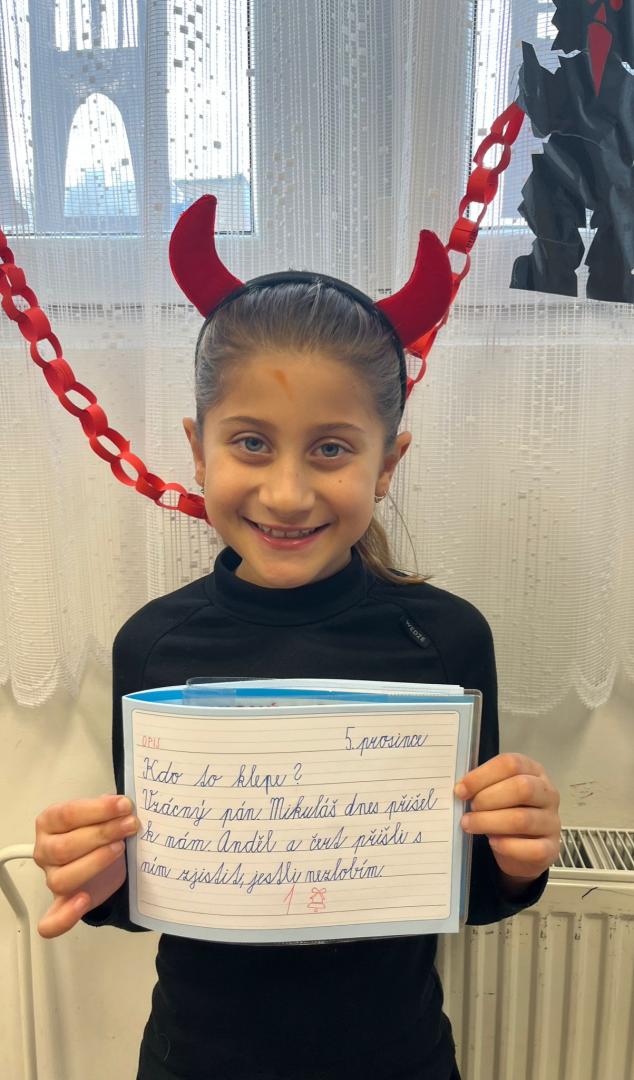 WEDZE
OPIS
5. prosince
Kdo to klepe?
Vzácný pán Mikuláš dnes přišel
k nám. Anděl a čert přišli s
ním zjistit, jestli nezlobím.
1